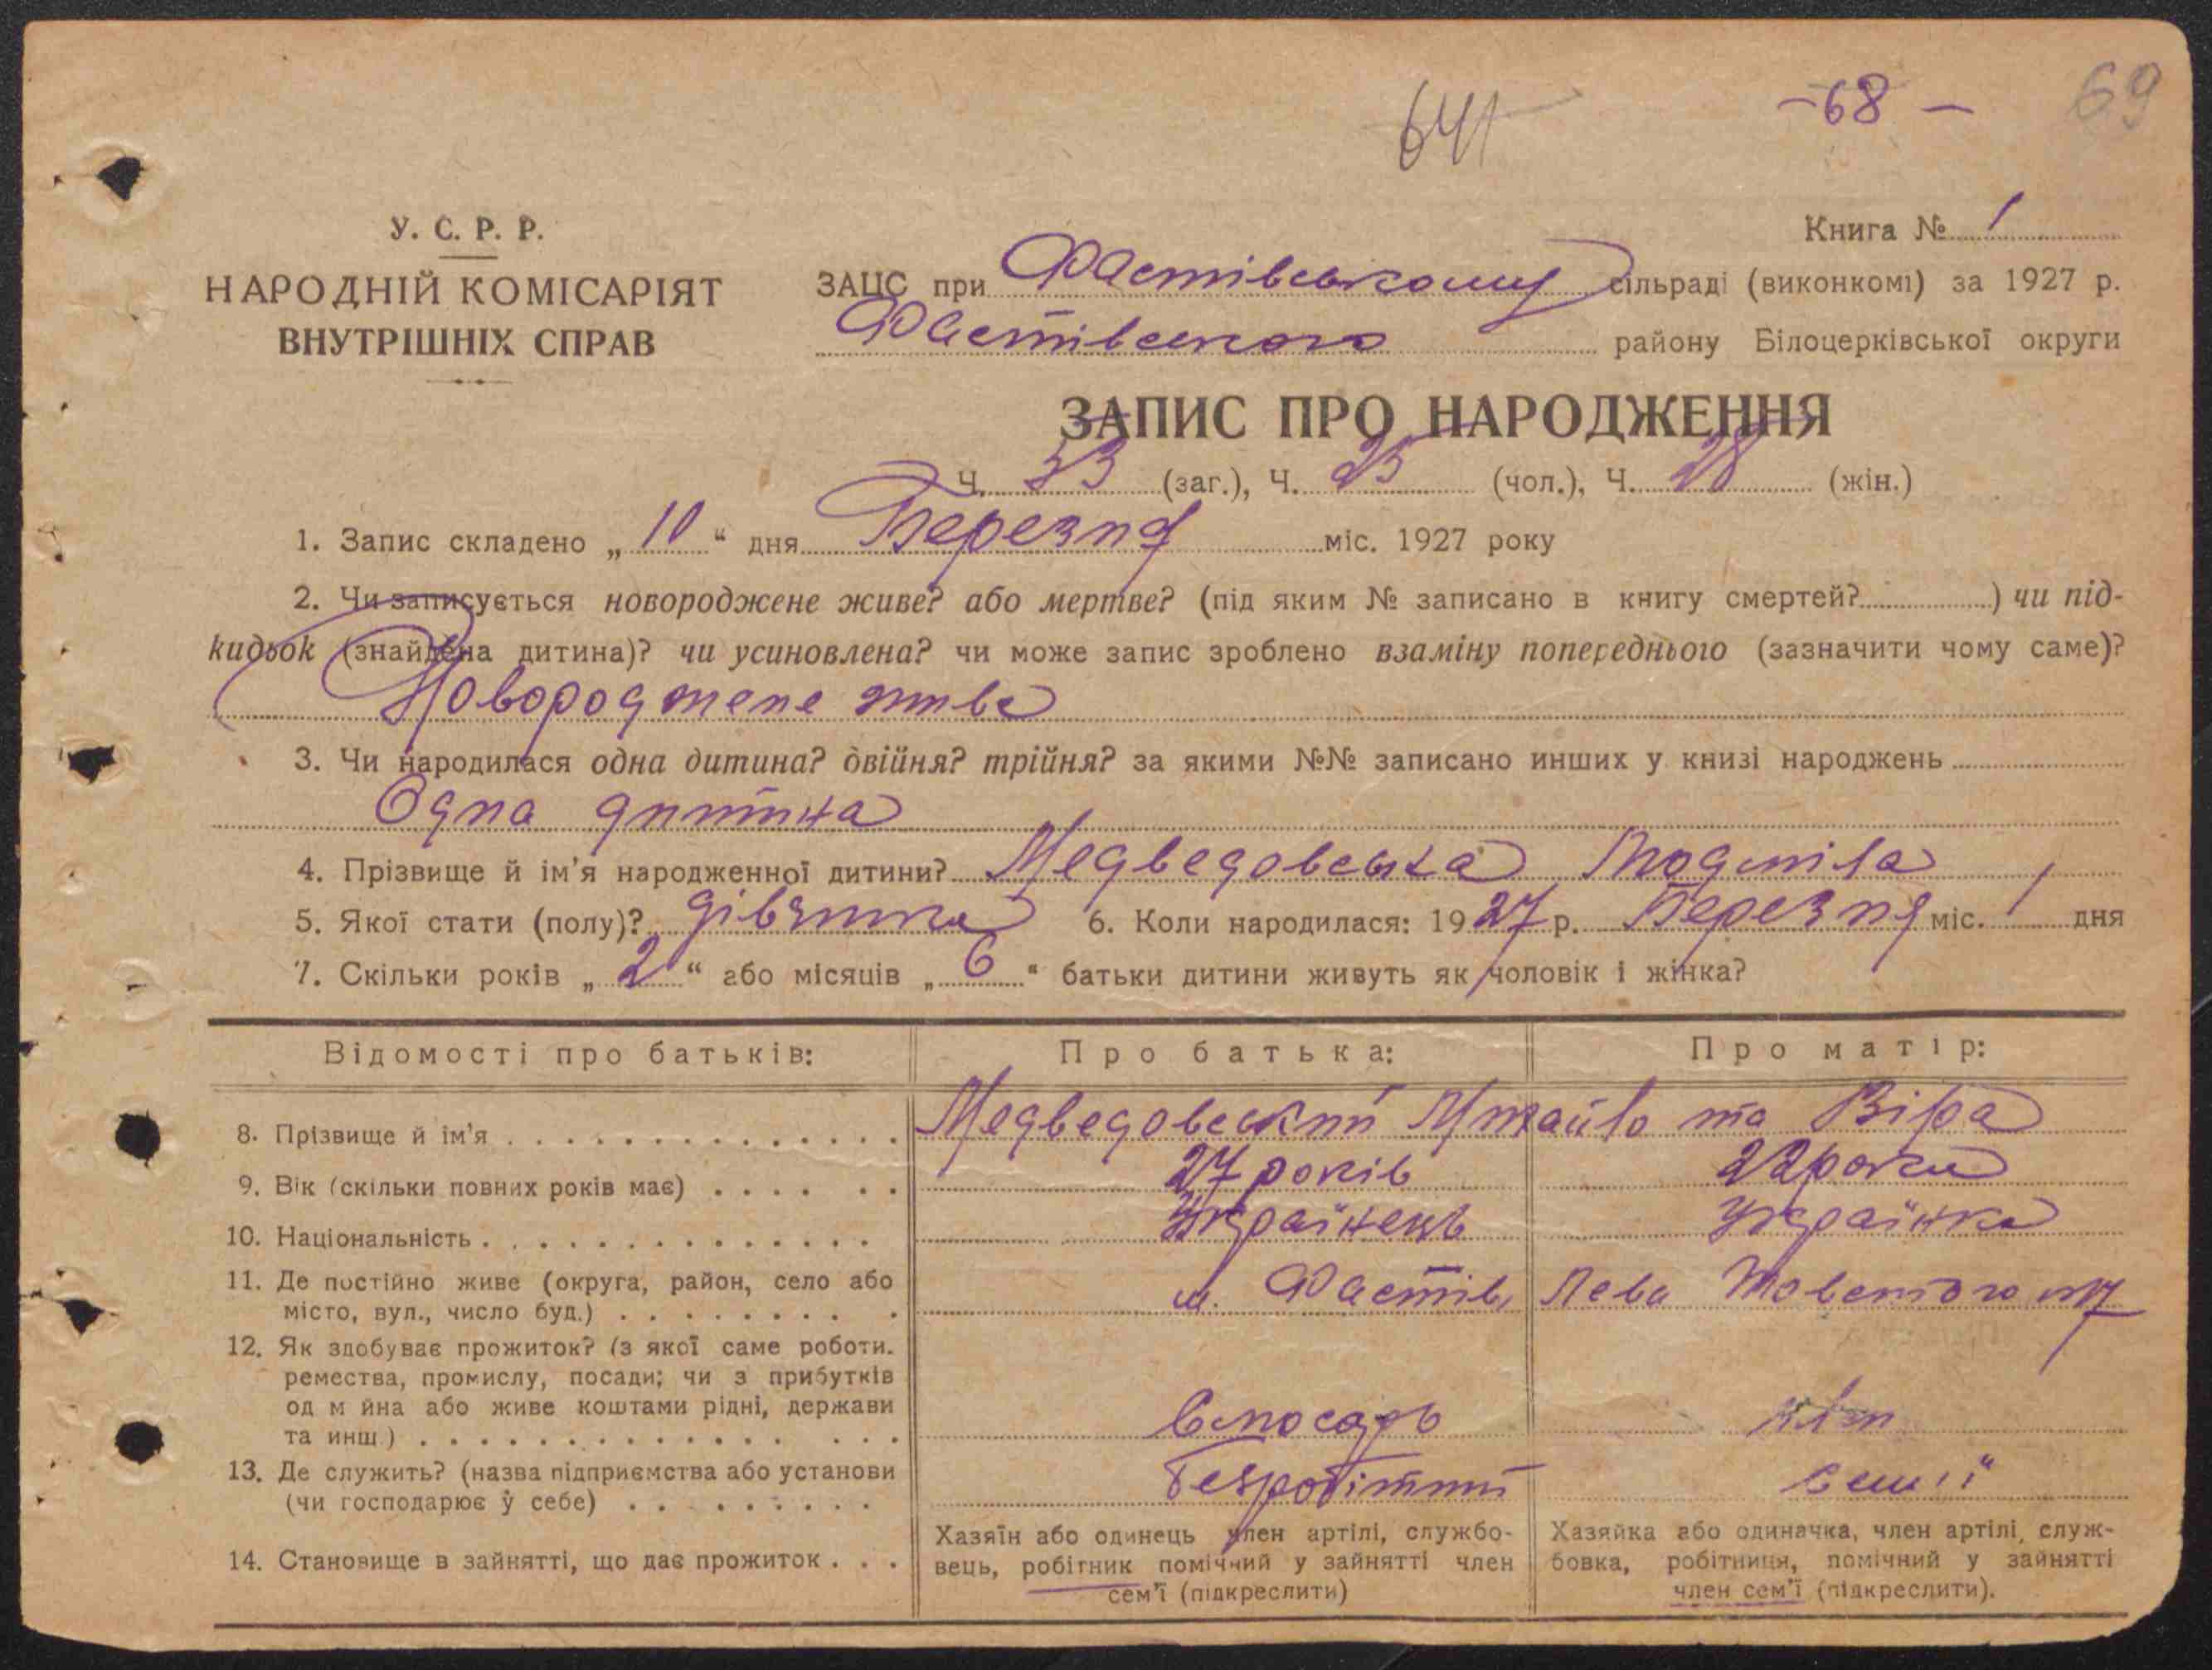 641
-68-
69
У. С. Р. Р.
НАРОДНІЙ КОМІСАРІЯТ
ВНУТРІШНІХ СПРАВ
Книга № 1
ЗАЦС при Фастівському сільраді (виконкомі) за 1927 р.
Фастівського району Білоцерківської округи
ЗАПИС ПРО НАРОДЖЕННЯ
Ч. 53 (заг.), Ч. 25 (чол.), Ч. 28 (жін.)
1. Запис складено „ 10 “ дня Березня міс. 1927 року
2. Чи записується новороджене живе? або мертве? (під яким № записано в книгу смертей?) чи під-
кидьок (знайдена дитина)? чи усиновлена? чи може запис зроблено взаміну попереднього (зазначити чому саме)?
Новороджене живе
3. Чи народилася одна дитина? двійня? трійня? за якими №№ записано инших у книзі народжень
Одна дитина
4. Прізвище й ім'я народженної дитини? Медведовська Людміла
5. Якої стати (полу)? дівчинка 6. Коли народилася: 1927 р. Березня міс. 1 дня
7. Скільки років „ 2 “ або місяців „ 6 “ батьки дитини живуть як чоловік і жінка?
Відомості про батьків: Про батька: Про матір:
8. Прізвище й ім'я Медведовский Михайло та Віра
9. Вік (скільки повних років має) 27 років 22 роки
10. Національність Українець Українка
11. Де постійно живе (округа, район, село або
місто, вул., число буд.) м. Фастів, Лева Товстого
12. Як здобуває прожиток? (з якої саме роботи.
ремества, промислу, посади; чи з прибутків
од м йна або живе коштами рідні, держави
та инш.) Слюсарь
13. Де служить? (назва підприємства або установи
(чи господарює у себе) Безробітний семії
14. Становище в зайнятті, що дає прожиток
Хазяїн або одинець член артілі, службо-
вець, робітник помічний у зайнятті член
сем'ї (підкреслити)
Хазяйка або одиначка, член артілі, служ-
бовка, робітниця, помічний у зайнятті
член сем'ї (підкреслити).